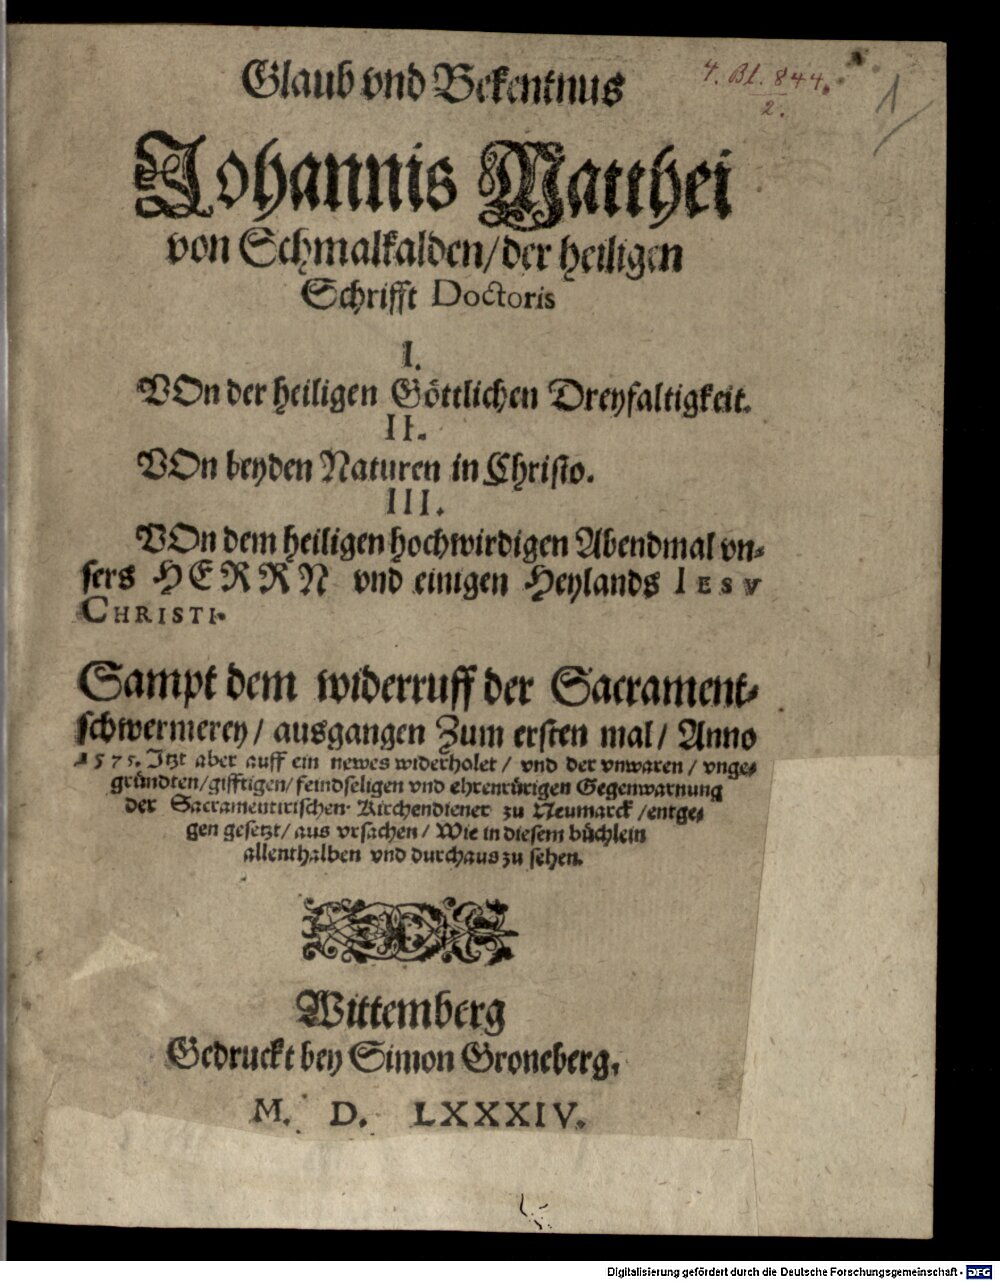 Glaub vnd Bekentnus
4. Bl. 844.
2.
1
Johannis Matthei
von Schmalkalden/der heiligen
Schrifft Doctoris
I.
VOn der heiligen Göttlichen Dreyfaltigkeit.
II.
VOn beyden Naturen in Christo.
III.
VOn dem heiligen hochwirdigen Abendmal vn-
sers HERRN vnd einigen Heylands IESV
CHRISTI.
Sampt dem widerruff der Sacrament-
schwermerey/ ausgangen Zum ersten mal/ Anno
1575. Jtzt aber auff ein newes widerholet/ vnd der vnwaren/ vnge-
gründten/gifftigen/feindseligen vnd ehrenrürigen Gegenwarnung
der Sacramentirischen Kirchendiener zu Neumarck/entge-
gen gesetzt/aus vrsachen/Wie in diesem büchlein
allenthalben vnd durchaus zu sehen.
Wittemberg
Gedruckt bey Simon Groneberg,
M. D. LXXXIV.
Digitalisierung gefördert durch die Deutsche Forschungsgemeinschaft - DFG